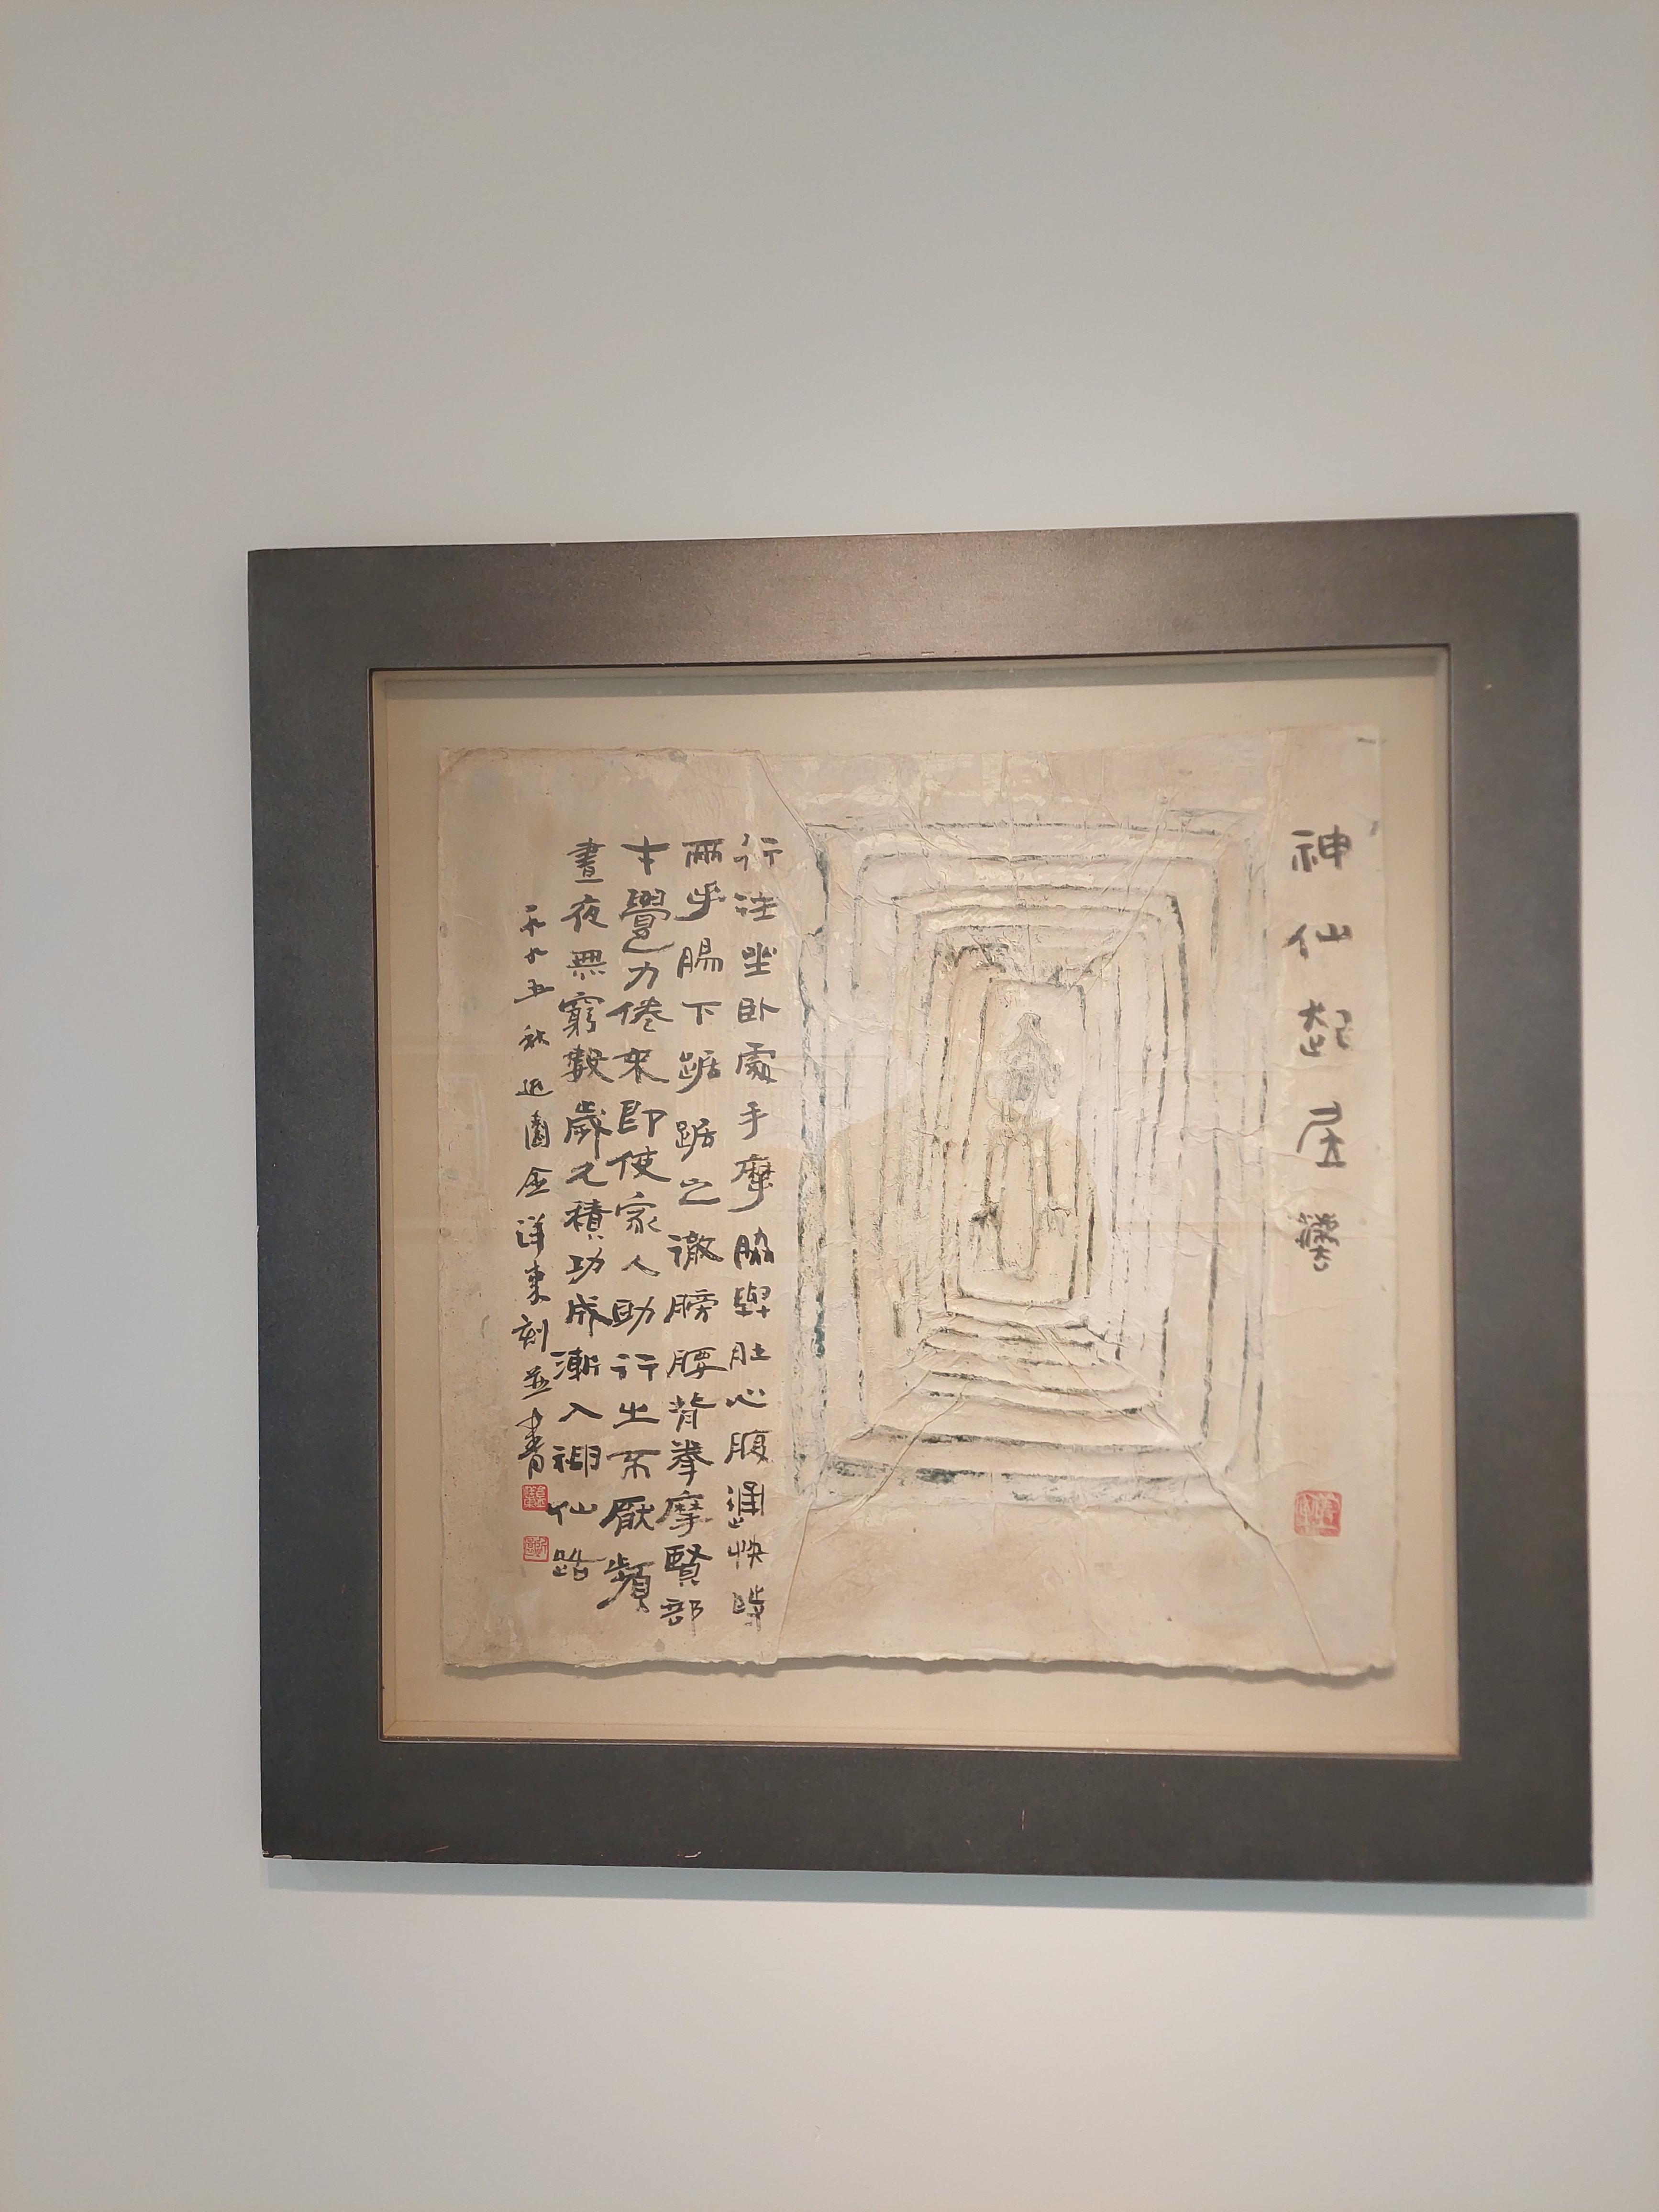 神仙起居灋
行住坐卧處手摩脇與肚心腹通快時
兩手腸下踞踞之徹膀腰背拳摩賢部
才覺力倦來即使家人助行之不厭頻
晝夜無窮數歲久積功成漸入神仙路
一九九五秋近園金洋東刻並書